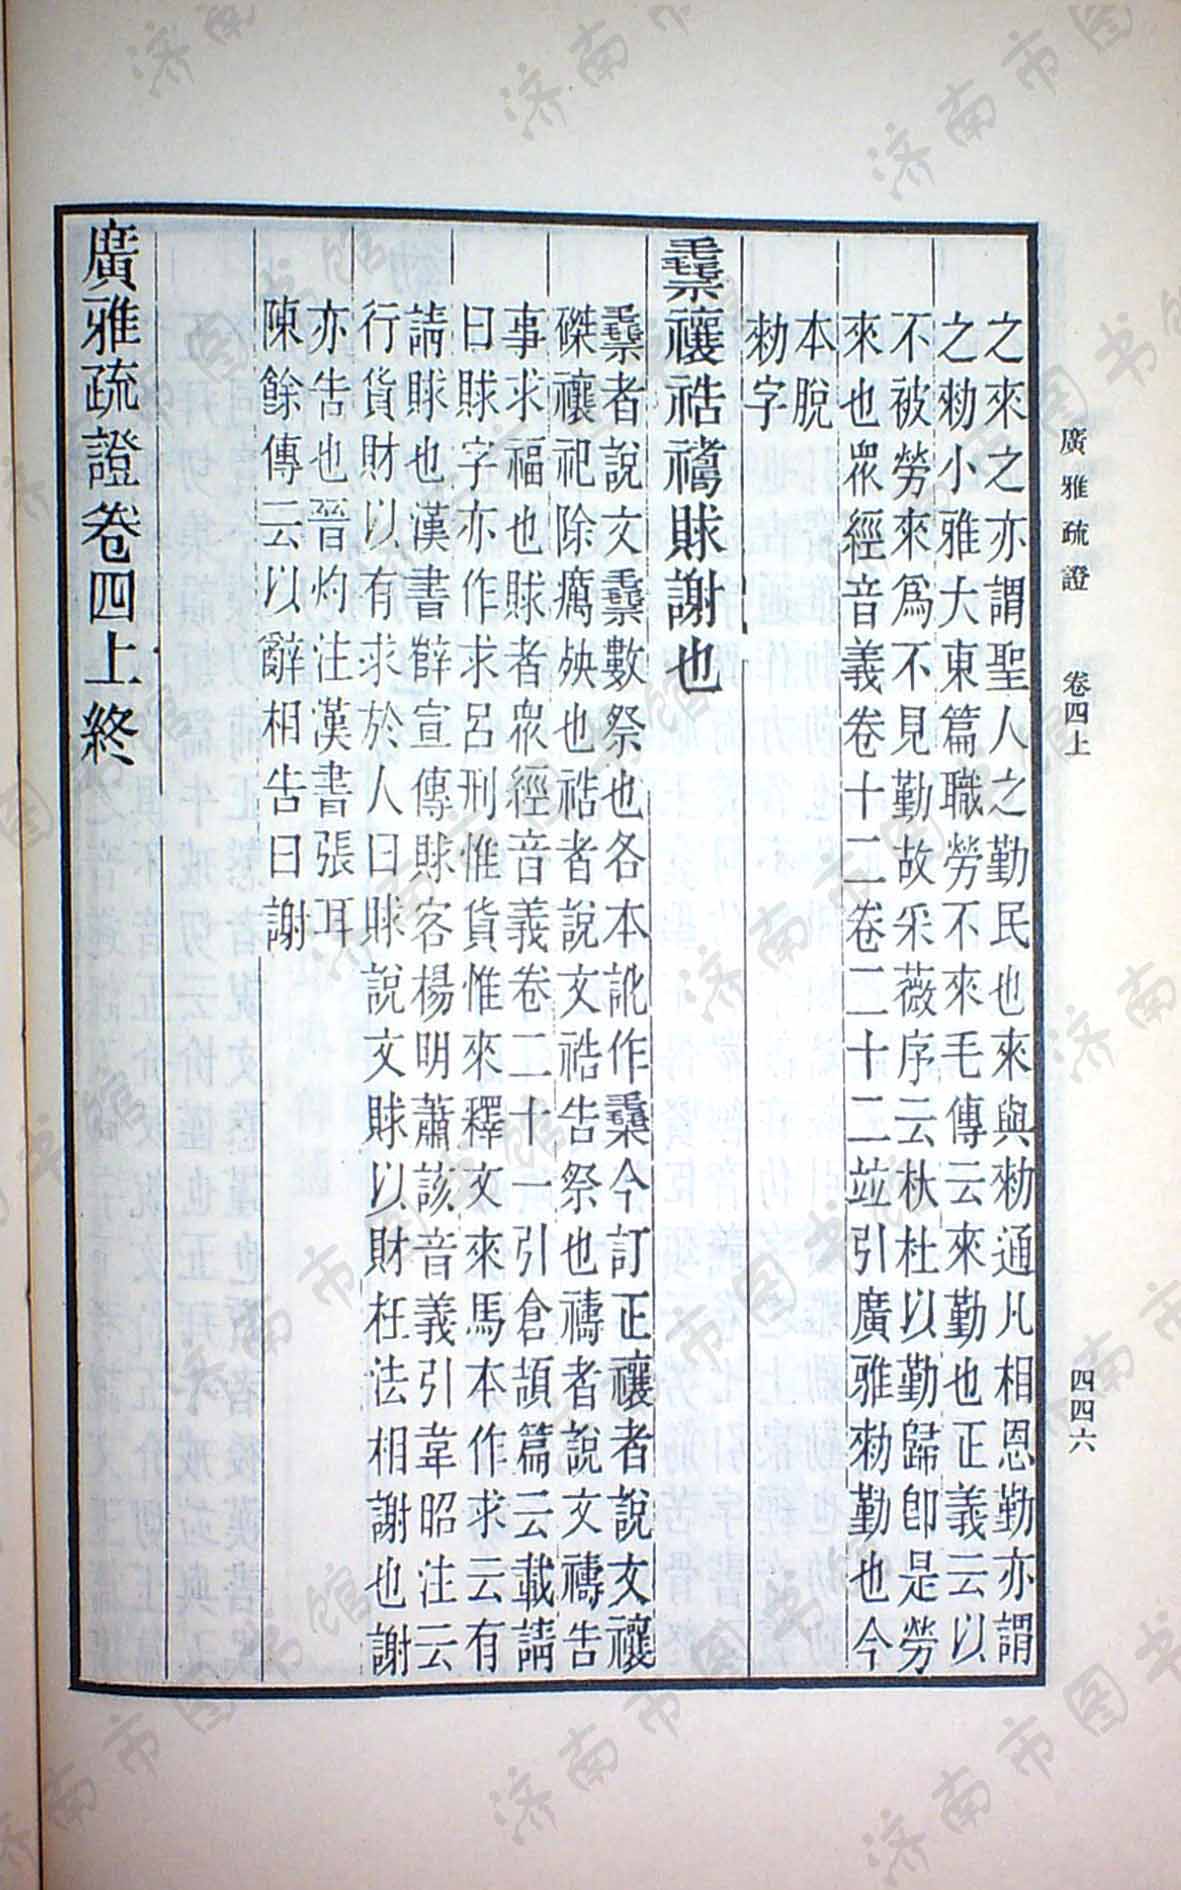 廣雅疏證　卷四上　四四六
之來之亦謂聖人之勤民也來與勑通凡相恩勤亦謂
之勑小雅大東篇職勞不來毛傳云來勤也正義云以
不被勞來爲不見勤故采薇序云杕杜以勤歸卽是勞
來也眾經音義卷十二卷二十二竝引廣雅勑勤也今
本脫
勑字
禷禳祰禱賕謝也
者說文數祭也各本訛作今訂正禳者說文禳
磔禳祀除癘殃也祰者說文祰告祭也禱者說文禱告
事求福也賕者眾經音義卷二十一引倉頡篇云載請
曰賕字亦作求呂刑惟貨惟來釋文來馬本作求云有
請賕也漢書薛宣傳賕客楊明蕭該音義引韋昭注云
行貨財以有求於人曰賕說文賕以財枉法相謝也謝
亦告也晉灼注漢書張耳
陳餘傳云以辭相告曰謝
廣雅疏證卷四上終